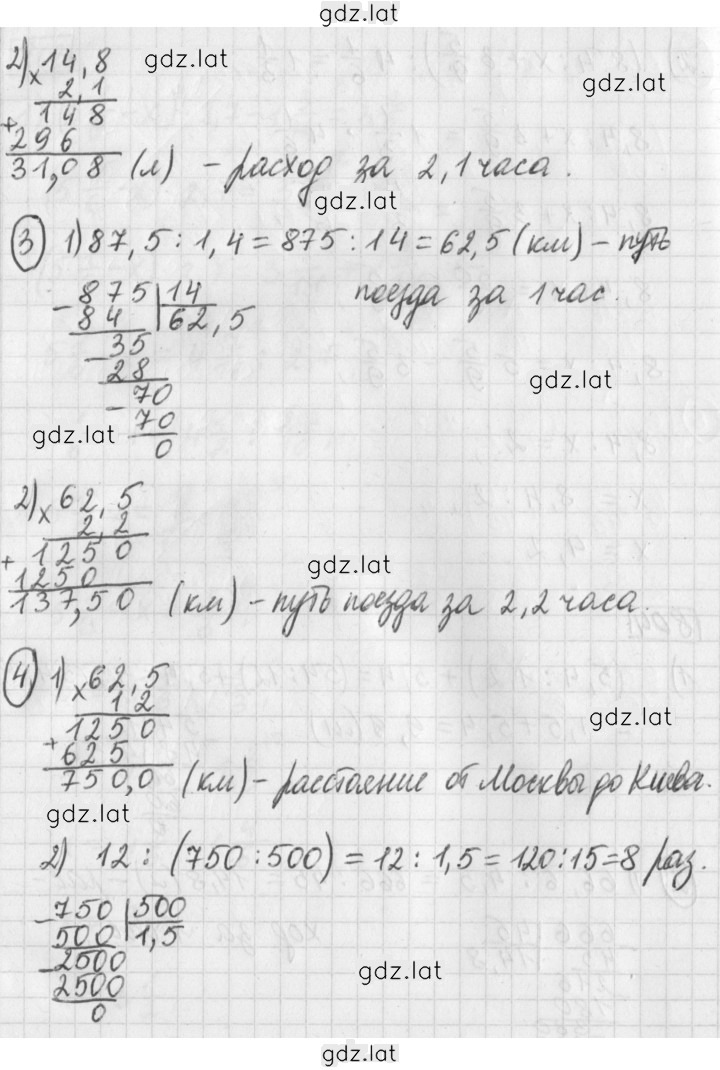 gdz.lat
2) × 14,8
gdz.lat
2,1
gdz.lat
148
+ 296
31,08 (л) – расход за 2,1 часа.
gdz.lat
3 1) 87,5 : 1,4 = 875 : 14 = 62,5 (км) – путь
поезда за 1 час.
- 875 | 14
84 | 62,5
- 35
28
gdz.lat
- 70
70
gdz.lat
0
2) × 62,5
2,2
+ 1250
gdz.lat
1250
137,50 (км) – путь поезда за 2,2 часа.
4 1) × 62,5
12
1250
gdz.lat
+ 625
750,0 (км) – расстояние от Москвы до Киева.
gdz.lat
2) 12 : (750 : 500) = 12 : 1,5 = 120 : 15 = 8 раз.
- 750 | 500
500 | 1,5
- 2500
gdz.lat
2500
0
gdz.lat